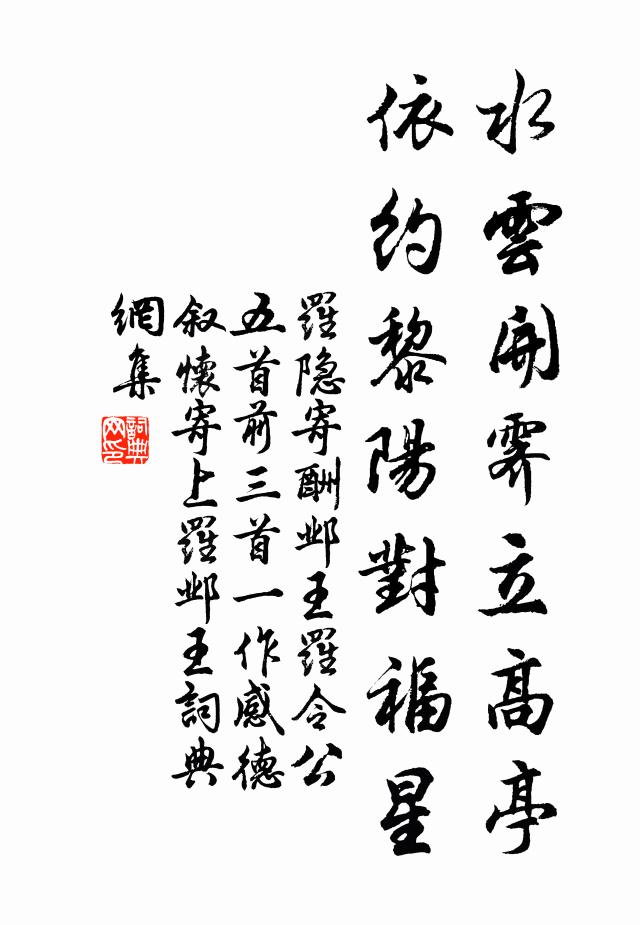 水雲開霽立高亭
依約黎陽對福星
羅隐寄酬邺王羅令公
五首前三首一作感德
叙懷寄上羅邺王詞典
網集
詞典
网印